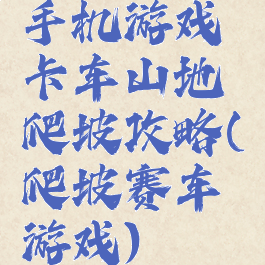 手机游戏
卡车山地
爬坡攻略(
爬坡赛车
游戏)